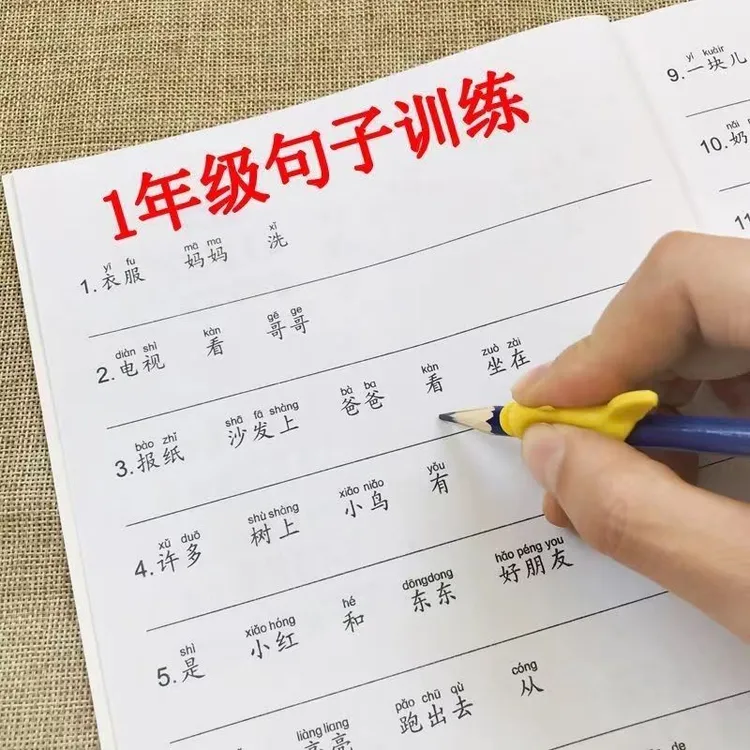 1年级句子训练
yī fu mā ma xǐ
1.衣服 妈妈 洗
diàn shì kàn gē ge
2.电视 看 哥哥
bào zhǐ shā fā shàng bà ba kàn zuò zài
3.报纸 沙发上 爸爸 看 坐在
xǔ duō shù shàng xiǎo niǎo yǒu
4.许多 树上 小鸟 有
shì xiǎo hóng hé dōngdong hǎo péng you
5.是 小红 和 东东 好朋友
liàng liang pǎo chū qù cóng
亮亮 跑出去 从
de
yí kuàir
9.一块儿
nǎi
10.奶
11